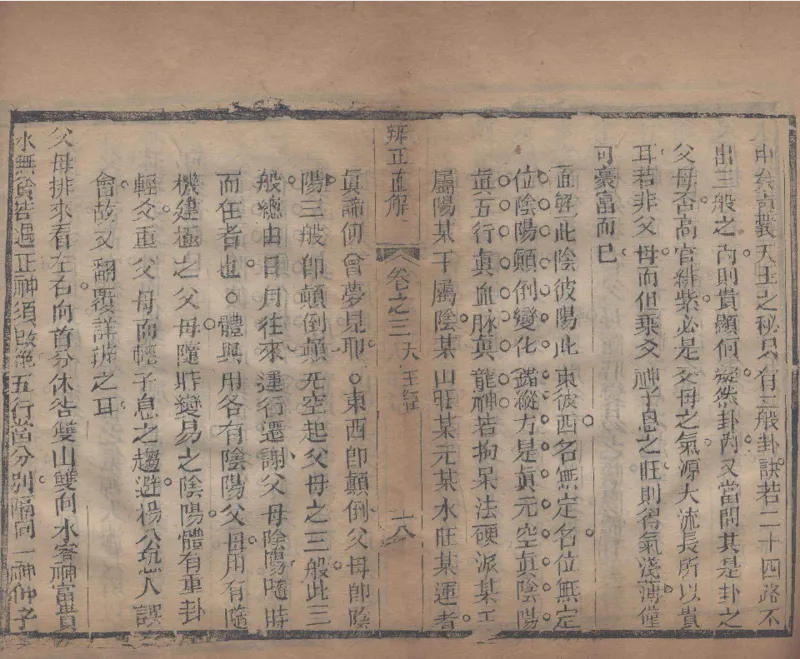 中矣青囊天玉之秘只有三般卦訣若二十四路不
出三般之內則貴顯何疑然卦內又當問其是卦之
父母否高官緋紫必是父母之氣源大流長所以貴
耳若非父母而但乘父神子息之旺則得氣淺薄僅
可豪富而已
直解此陰彼陽此東彼西名無定名位無定
位陰陽顛倒變化錯縱方是眞元空眞陰陽
眞五行眞血脉眞龍神若拘呆法硬派某干
屬陽某干屬陰某山旺某元某水旺某運者
辨正直解 卷之三 天玉經 十八
眞諦何曾夢見耶。東西卽顛倒父母卽陰
陽三般卽顛倒顛元空起父母之三般此三
般總由日月往來運行還謝父母陰陽隨時
而在者也。體與用各有陰陽父母用有隨
機建極之父母隨時變易之陰陽體有重卦
輕爻重父母而輕子息之趨避楊公恐人誤
會故又翻覆詳辨之耳
父母排來看左右向首分休咎雙山雙向水零神富貴
水無貧咎遇正神須敗絕五行當分別隔向一神仲子